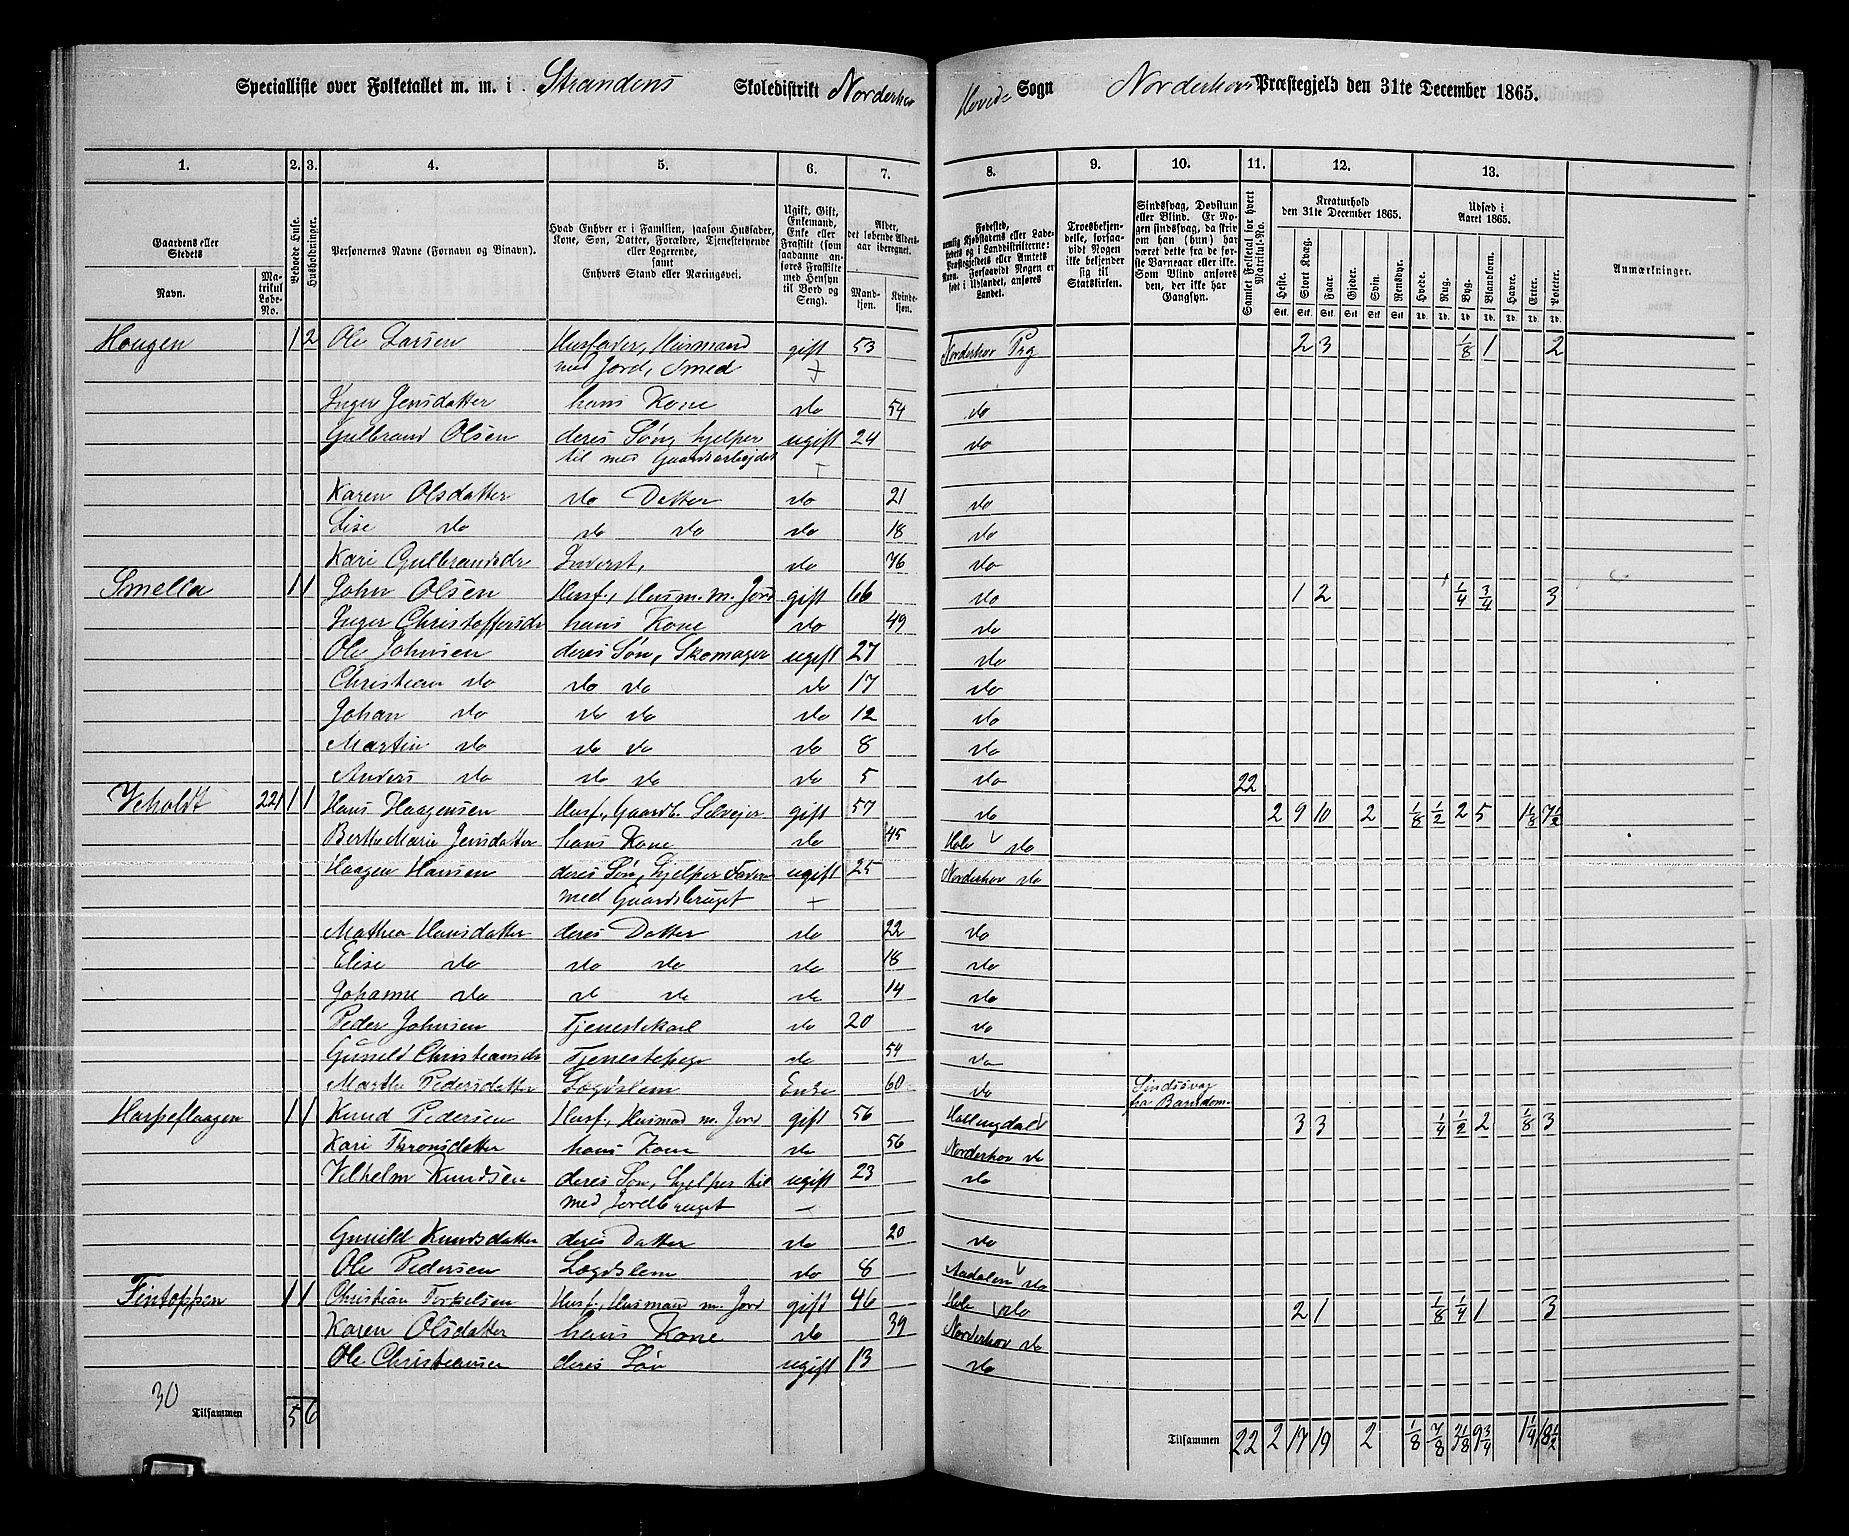 Specialliste over Folketallet m. m. i Strandens Skoledistrikt Norderhov Hoved- Sogn Norderhovs Præstegjeld den 31te December 1865.
1. 2. 3. 4. 5. 6. 7. 8. 9. 10. 11. 12. 13.
Gaardens eller Stedets
Navn.
Matrikul Løbe-No.
Beboede Huse.
Husholdninger.
Personernes Navne (Fornavn og Vinavn).
Hvad Enhver er i Familien, saasom Husfader,
Kone, Søn, Datter, Forældre, Tjenestetyende
eller Logerende,
samt
Enhvers Stand eller Næringsvei.
Ugift, Gift,
Enkemand,
Enke eller
Fraskilt (som
saadanne anføres
Fraskilte
med Hensyn
til Bord og
Seng).
Alder,
det løbende Aldersaar
iberegnet.
Mandkjøn.
Kvindekjøn.
Fødested,
Troesbekjendelse,
forsaavidt
Nogen
ikke bekjender
sig til
Statskirken.
Sindssvag, Døvstum
eller Blind. Er Nogen
sindssvag, da skrives
om han (hun) har
været dette fra de første
Barneaar eller ikke.
Som Blind anføres
den, der ikke har
Gangsyn.
Samlet Folketal for hvert Matrikul-No.
Kreaturhold
den 31te December 1865.
Heste. Stort Kvæg. Faar. Gjeder. Svin. Rensdyr.
Udsæd i
Aaret 1865.
Hvede. Rug. Byg. Blandkorn. Havre. Erter. Poteter.
Anmærkninger.
Hougen 1 2 Ole Larsen Husfader, Husmand gift 53 Norderhov Prg 2 3 1/8 1 2
med Jord, Smed +
Inger Jensdatter hans Kone do 54 do
Gulbrand Olsen deres Søn, hjelper ugift 24 do
til med Gaardsarbejdet
Karen Olsdatter do Datter do 21 do
Lise do do do do 18 do
Kari Gulbrandsdr Inderst, do 76 do
Smella 1 1 John Olsen Husf., Husm. m. Jord gift 66 do 1 2 1/4 3/4 3
Inger Christoffersdr hans Kone do 49 do
Ole Johnsen deres Søn, Skomager ugift 27 do
Christian do do do do 17 do
Johan do do do do 12 do
Martin do do do do 8 do
Anders do do do do 5 do 22
Veholdt 221 1 1 Hans Haagensen Husf., Gaardb. Selvejer gift 57 do 2 9 10 2 1/8 1/2 2 5 1 1/8 7 1/2
Berthe Marie Jensdatter hans Kone do 45 Hole do
Haagen Hansen deres Søn, hjelper Faderen ugift 25 Norderhov do
med Gaardsbruget +
Mathea Hansdatter deres Datter do 22 do
Elise do do do do 18 do
Johanne do do do do 14 do
Peder Johnsen Tjenestekarl do 20 do
Gunild Christiansdr Tjenestepige do 54 do
Marthe Pedersdatter Lægdslem Enke 60 do Sindssvag
fra Barndom
Harpeflaagen 1 1 Knud Pedersen Husf., Husmand m. Jord gift 56 Hallingdal 3 3 1/4 1/2 2 1/8 3
Kari Thronsdatter hans Kone do 56 Norderhov do
Vilhelm Knudsen deres Søn, hjelper til ugift 23 do
med Jordbruget
Gunild Knudsdatter deres Datter do 20 do
Ole Pedersen Lægdslem do 8 Aadalen do
Tintoppen 1 1 Christian Torkelsen Husf., Husmand m. Jord gift 46 Hole do 2 1 1/8 1/4 1 3
Karen Olsdatter hans Kone do 39 Norderhov do
Ole Christiansen deres Søn ugift 13 do
30
Tilsammen 5 6 Tilsammen 22 2 17 19 2 1/8 7/8 3 1/8 9 3/4 1 1/4 18 1/2